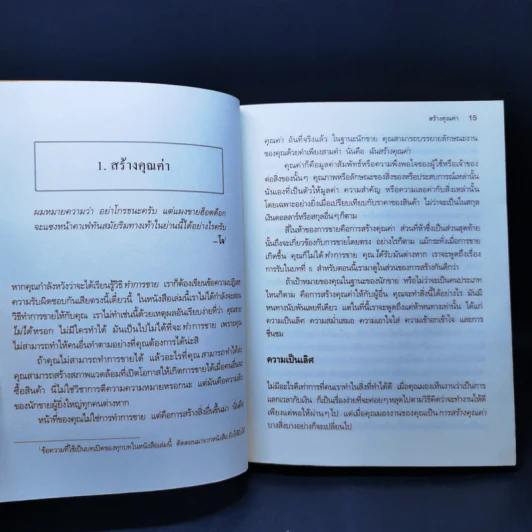 1. สร้างคุณค่า
ผมหมายความว่า อย่าโกรธนะครับ แต่แผงขายฮ็อตด็อก
จะแซงหน้าคาเฟ่ทันสมัยริมทางเท้าในย่านนี้ได้อย่างไรครับ
หากคุณกำลังหวังว่าจะได้เรียนรู้วิธี ทำการขาย เราก็ต้องเขียนข้อความปฏิเสธ
ความรับผิดชอบกันเสียตรงนี้เดี๋ยวนี้ ในหนังสือเล่มนี้เราไม่ได้กำลังจะสอน
วิธีทำการขายให้กับคุณ เราไม่ทำเช่นนี้ด้วยเหตุผลอันเรียบง่ายที่ว่า คุณขาย
ไม่ได้หรอก ไม่มีใครทำได้ มันเป็นไปไม่ได้ที่จะทำการขาย เพราะคุณ
ไม่สามารถทำให้คนอื่นทำตามอย่างที่คุณต้องการได้น่ะสิ
ถ้าคุณไม่สามารถทำการขายได้ แล้วอะไรที่คุณ สามารถทำได้ล่ะ
คุณสามารถสร้างสภาพแวดล้อมที่เปิดโอกาสให้เกิดการขายได้
ซื้อสินค้า นี่ไม่ใช่วิชาการตีความความหมายหรอกนะ แต่มันคือความลับ
ของนักขายผู้ยิ่งใหญ่ทุกคนต่างหาก
หน้าที่ของคุณไม่ใช่การทำการขาย แต่คือการสร้างสิ่งอื่นขึ้นมา นั่นคือ
ข้อความที่ใช้เป็นบทเปิดของทุกบทในหนังสือเล่มนี้ ตัดตอนมาจากหนังสือ
สร้างคุณค่า 15
คุณค่า อันที่จริงแล้ว ในฐานะนักขาย คุณสามารถบรรยายลักษณะงาน
ของคุณด้วยคำเพียงสามคำ นั่นคือ ฉันสร้างคุณค่า
คุณค่าก็คือมูลค่าสัมพัทธ์หรือความพึงพอใจของผู้ใช้หรือเจ้าของ
ต่อสิ่งของนั้นๆ คุณภาพหรือลักษณะของสิ่งของหรือประสบการณ์เหล่านั้น
นั่นเองที่เป็นตัวให้มูลค่า ความสำคัญ หรือความเลอค่ากับสิ่งเหล่านั้น
โดยเฉพาะอย่างยิ่งเมื่อเปรียบเทียบกับราคาของสินค้า ไม่ว่าจะเป็นในสกุล
เงินดอลลาร์หรือสกุลอื่นๆ ก็ตาม
สี่ในห้าของการขายคือการสร้างคุณค่า ส่วนที่ห้าซึ่งเป็นส่วนสุดท้าย
นั้นถึงจะเกี่ยวข้องกับการขายโดยตรง อย่างไรก็ตาม แม้กระทั่งเมื่อการขาย
เกิดขึ้น คุณก็ไม่ได้ ทำการขาย คุณ ได้รับมันต่างหาก เราจะพูดถึงเรื่อง
การรับในบทที่ 6 สำหรับตอนนี้เรามาดูในส่วนของการสร้างกันดีกว่า
ถ้าเป้าหมายของคุณในฐานะของนักขาย หรือไม่ว่าจะเป็นคนประเภท
ไหนก็ตาม คือการสร้างคุณค่าให้กับผู้อื่น คุณจะทำสิ่งนี้ได้อย่างไร มันมี
หนทางนับพันเลยทีเดียว แต่ในที่นี้เราจะพูดถึงแค่ห้าหนทางเท่านั้น ได้แก่
ความเป็นเลิศ ความสม่ำเสมอ ความเอาใจใส่ ความเข้าอกเข้าใจ และการ
ชื่นชม
ความเป็นเลิศ
ไม่มีอะไรดีเท่าการที่คนเราทำในสิ่งที่ทำได้ดี เมื่อคุณมองเห็นงานว่าเป็นการ
แลกเวลากับเงิน ก็เป็นเรื่องง่ายที่จะค่อยๆ หลุดไปตามวิถีคิดว่าจะทำงานให้ดี
เพียงแค่พอให้ผ่านๆ ไป แต่เมื่อคุณมองงานของคุณเป็น การสร้างคุณค่า
บางสิ่งบางอย่างก็จะเปลี่ยนไป